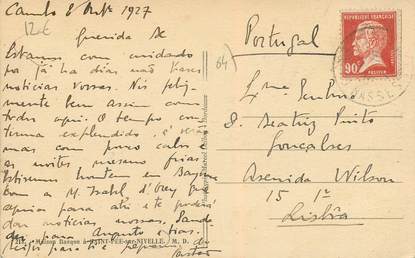 Cambo 8 1927
12€
Querida
Estamos com cuidado
por já ha dias não
noticias vossas. Nós feliz-
mente bem assim como
todos aqui. O tempo
tem esplendido, é verão
mas com pouco calor e
as noites mesmo frias
Estivemos hontem em Bayonne
com a M. Isabel d'Orey que
para até e te poderá
dar noticias nossas. Sauda-
des para Augusto e tias.
para ti e pequenos da
64)
Portugal
Exma Senhora
D. Beatriz Pinto
Gonçalves
Avenida Wilson
15 1º
Lisbôa
RÉPUBLIQUE FRANÇAISE
90c
PASTEUR
POSTES
Maison Basque à SAINT-PÉE-sur-NIVELLE. M. D.